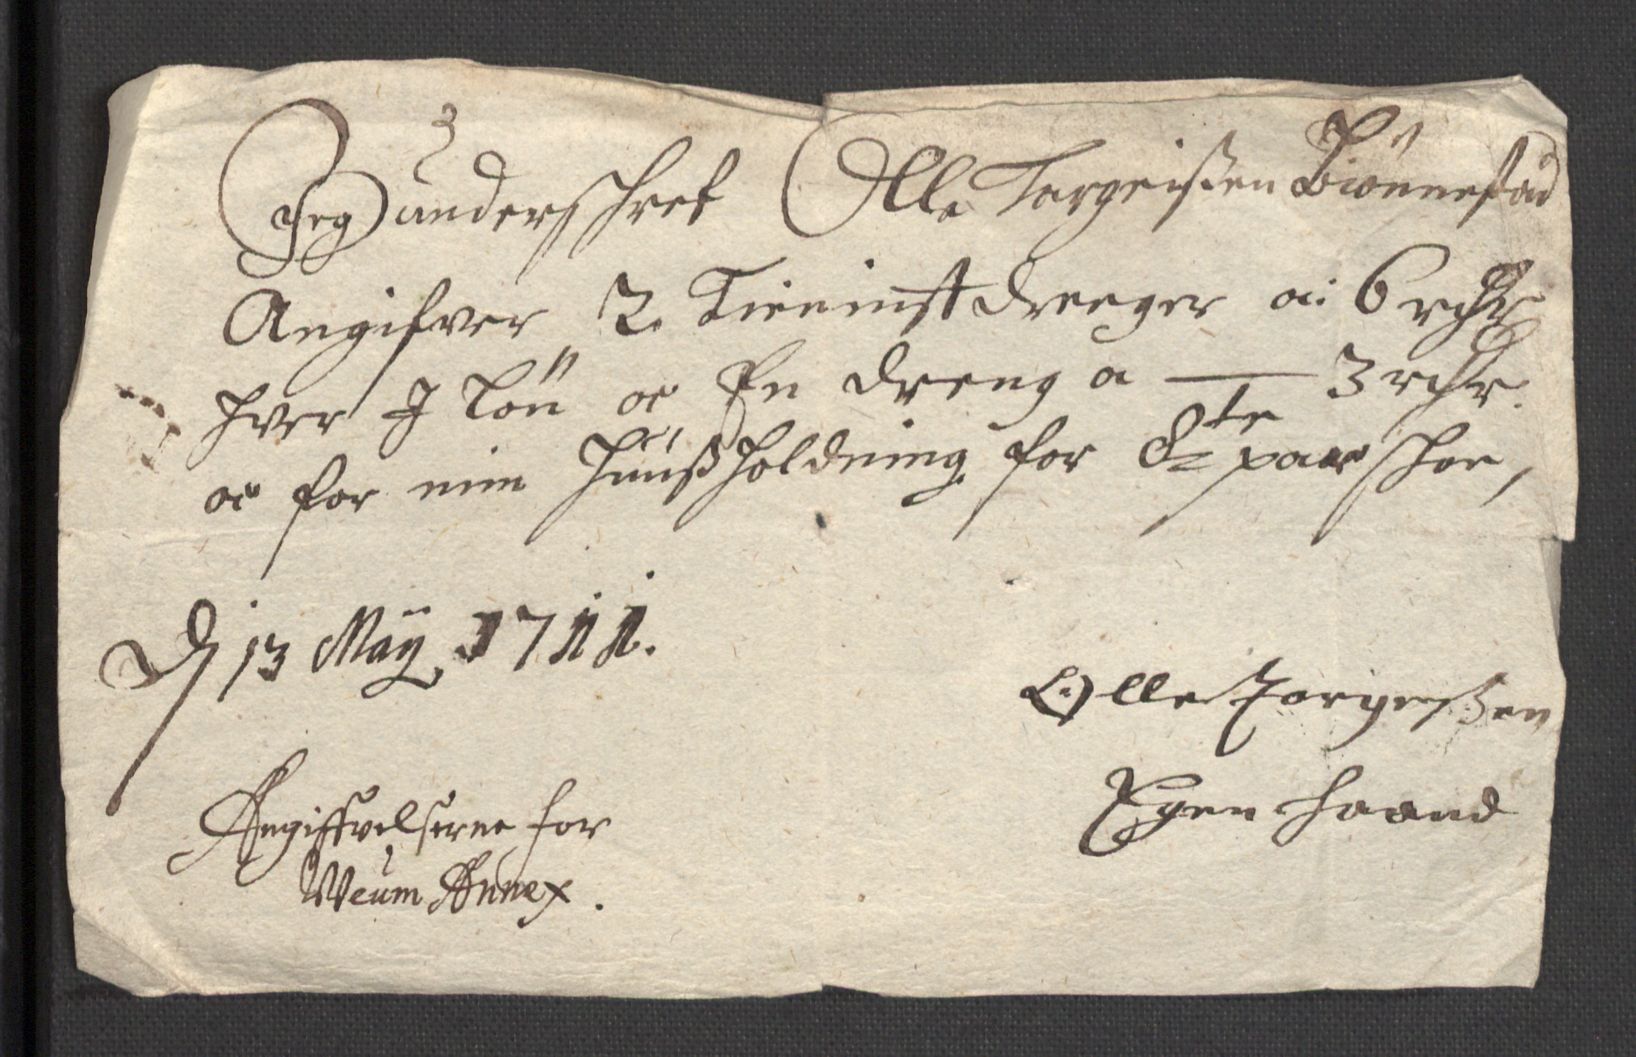 Jeg underschref Olle Targeißen Biönnestad
Angifver 2. Tieniist dreeger a: 6 rdr
hver J Lön oc En dreng a — 3 rdr.
oc for min Huußholdning for 8te paar schoe,
D 13 Maÿ 1711.
Olle Torgeßen
Egen haand
Angiffvelserne for
Weum Annex.